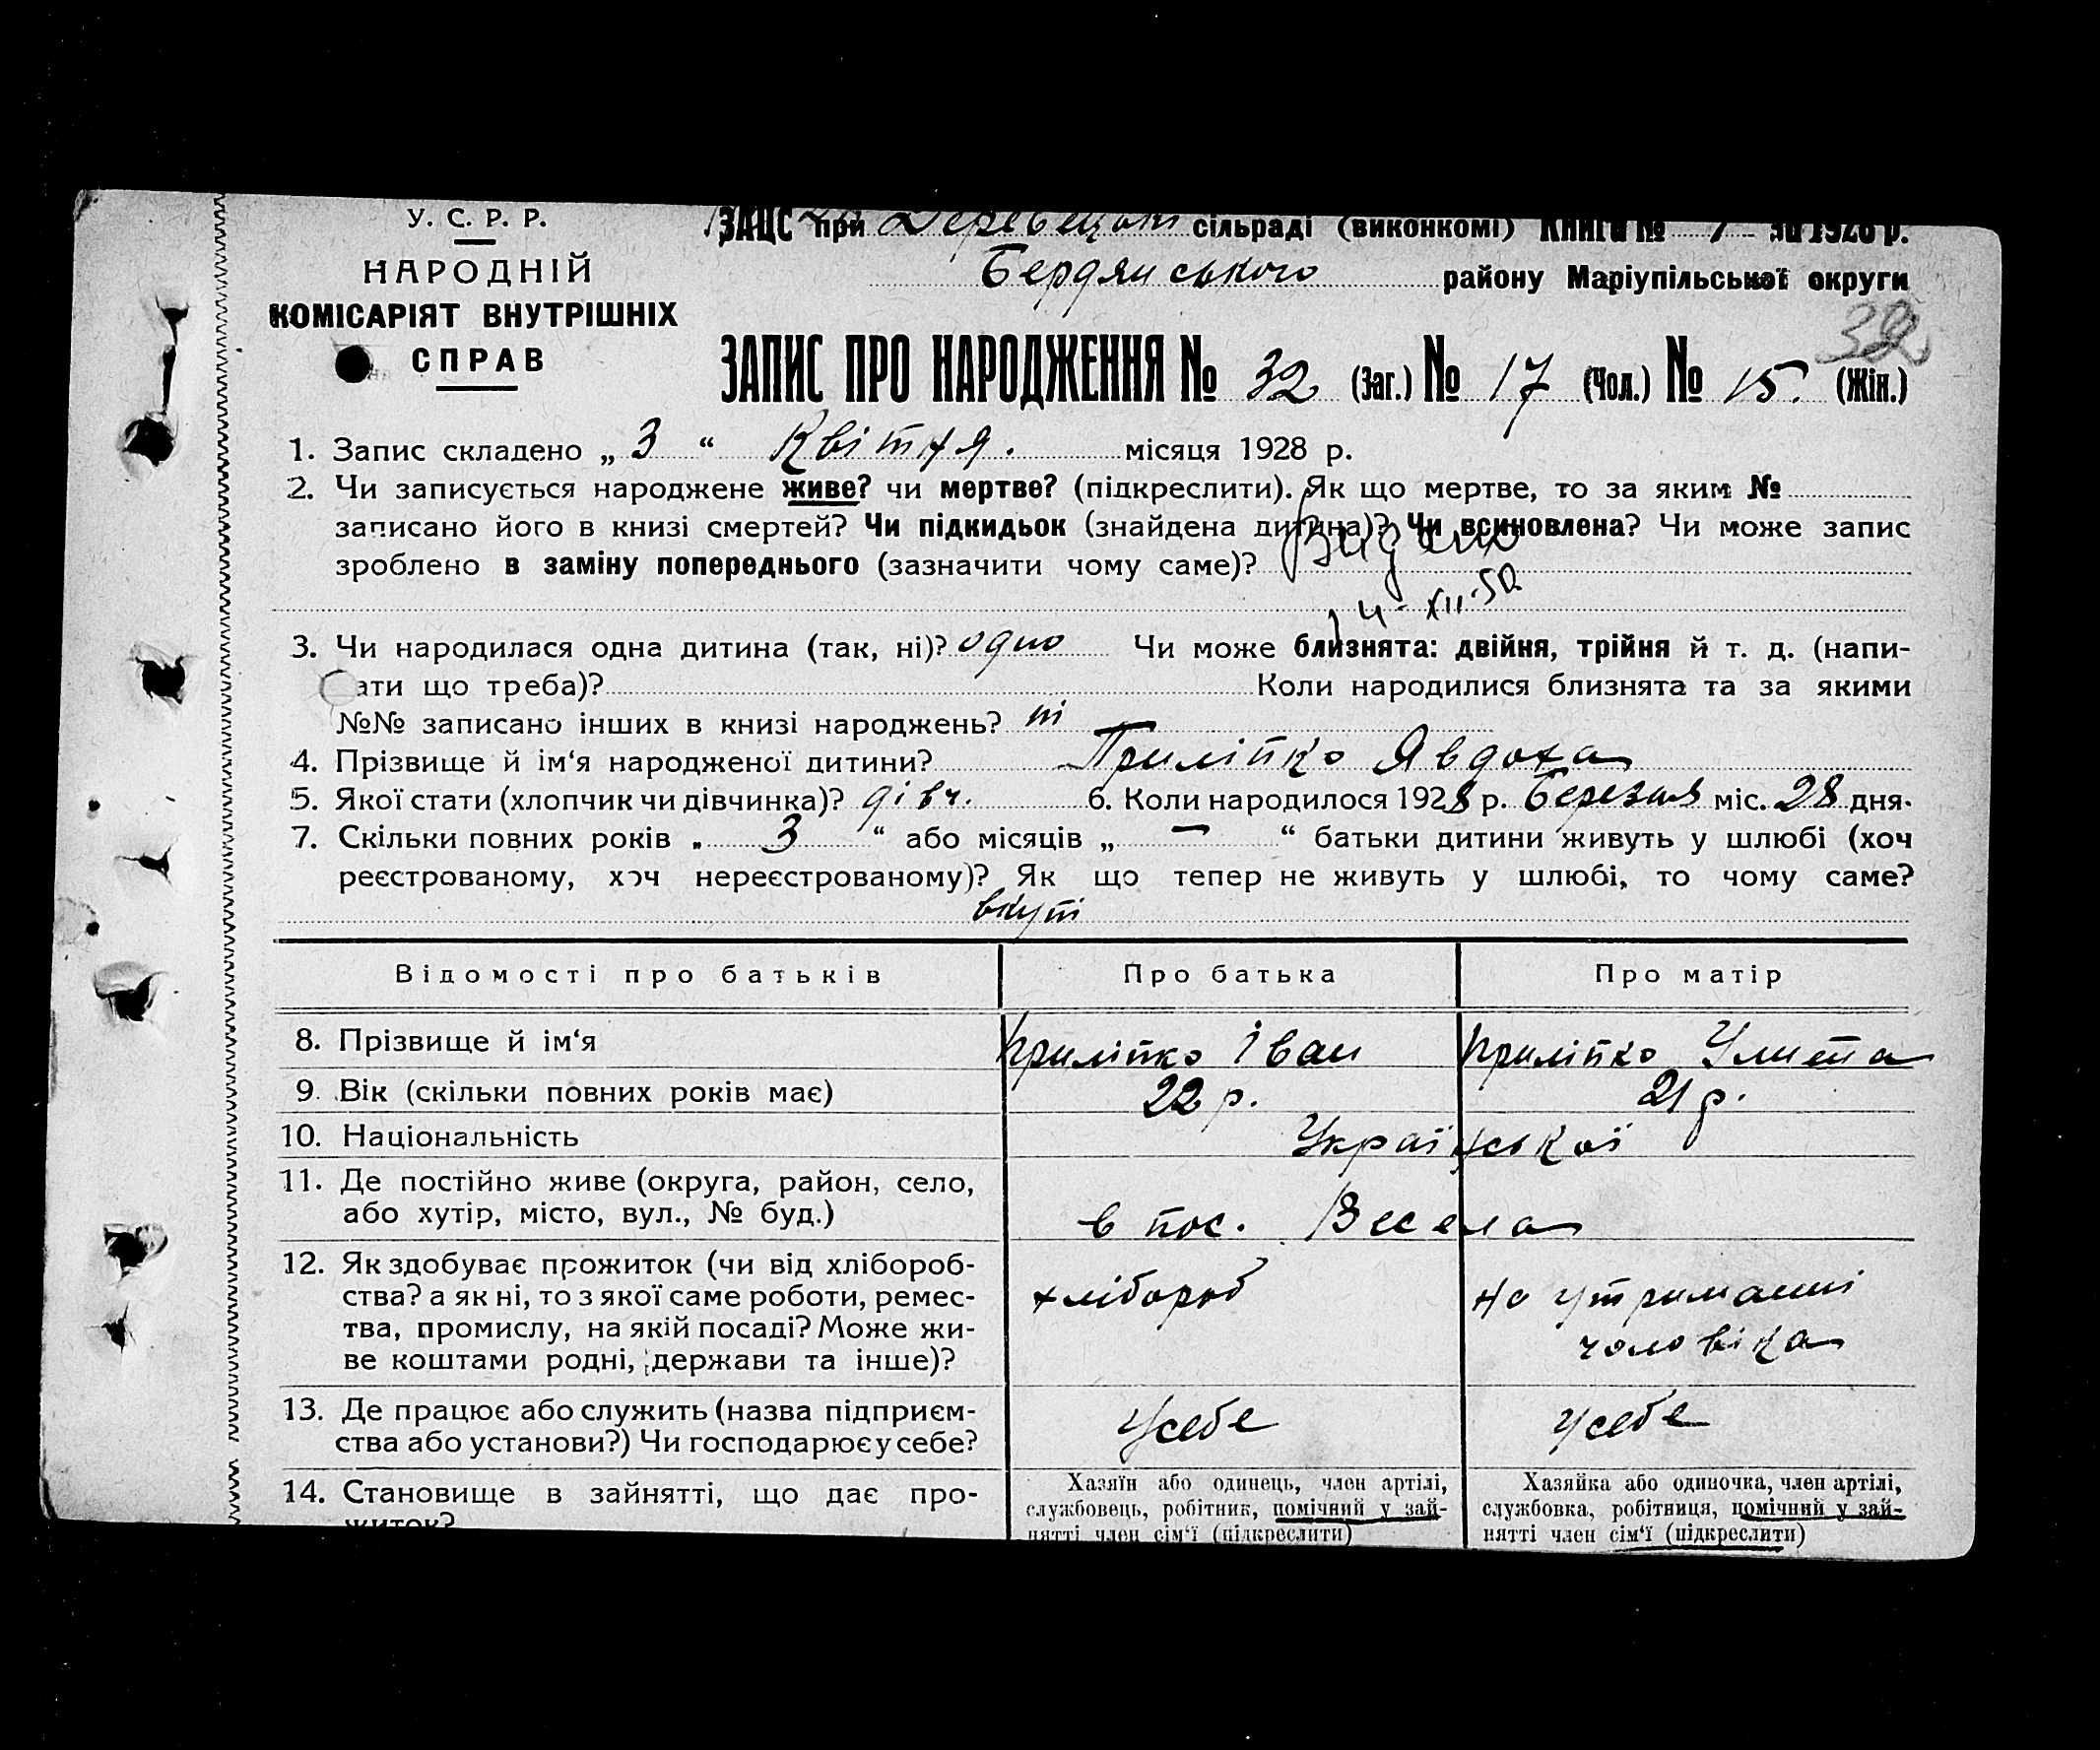 У. С. Р. Р.
НАРОДНІЙ
КОМІСАРІЯТ ВНУТРІШНІХ
СПРАВ
ЗАЦС при сільраді (виконкомі) Книга № 1 за 1928 р.
Бердянського району Маріупільської округи
32
ЗАПИС ПРО НАРОДЖЕННЯ № 32 (Заг.) № 17 (Чол.) № 15. (Жін.)
1. Запис складено „ 3 “ Квітня. місяця 1928 р.
2. Чи записується народжене живе? чи мертве? (підкреслити). Як що мертве, то за яким №
записано його в книзі смертей? Чи підкидьок (знайдена дитина)? Чи всиновлена? Чи може запис
зроблено в заміну попереднього (зазначити чому саме)?
3. Чи народилася одна дитина (так, ні)? одно Чи може близнята: двійня, трійня й т. д. (напи-
ати що треба)? Коли народилися близнята та за якими
№№ записано інших в книзі народжень? ні
4. Прізвище й ім‘я народженої дитини? Приліпко Явдоха
5. Якої стати (хлопчик чи дівчинка)? дівч. 6. Коли народилося 1928 р. Березня міс. 28 дня.
7. Скільки повних років „ 3 “ або місяців „ — “ батьки дитини живуть у шлюбі (хоч
реєстрованому, хоч нереєстрованому)? Як що тепер не живуть у шлюбі, то чому саме?
вкупі
Відомості про батьків Про батька Про матір
8. Прізвище й ім‘я Приліпко Іван Приліпко Улита
9. Вік (скільки повних років має) 22 р. 21 р.
10. Національність Української
11. Де постійно живе (округа, район, село,
або хутір, місто, вул., № буд.) в пос. Весела
12. Як здобуває прожиток (чи від хлібороб-
ства? а як ні, то з якої саме роботи, ремес-
тва, промислу, на якій посаді? Може жи-
ве коштами родні, держави та інше)? хлібороб на утриманні
чоловіка
13. Де працює або служить (назва підприєм-
ства або установи?) Чи господарює у себе? Усебе усебе
14. Становище в зайнятті, що дає про-
житок? Хазяїн або одинець, член артілі,
службовець, робітник, помічний у зай-
нятті член сім‘ї (підкреслити)
Хазяйка або одиночка, член артілі,
службовка, робітниця, помічний у зай-
нятті член сім‘ї (підкреслити)